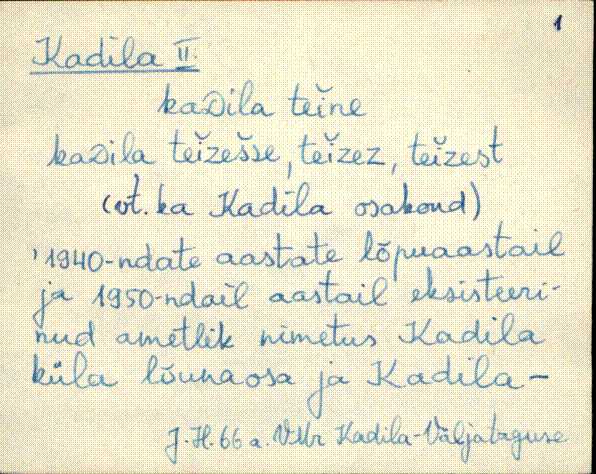 1
Kadila II.
kaᴅila teĭne
kaᴅila teĭzešse, teĭzez, teĭzest
(vt. ka Kadila osakond)
'1940-ndate aastate lõpuaastail
ja 1950-ndail aastail eksisteeri-
nud ametlik nimetus Kadila
küla lõunaosa ja Kadila-
J. H. 66 a. VMr Kadila-Väljataguse